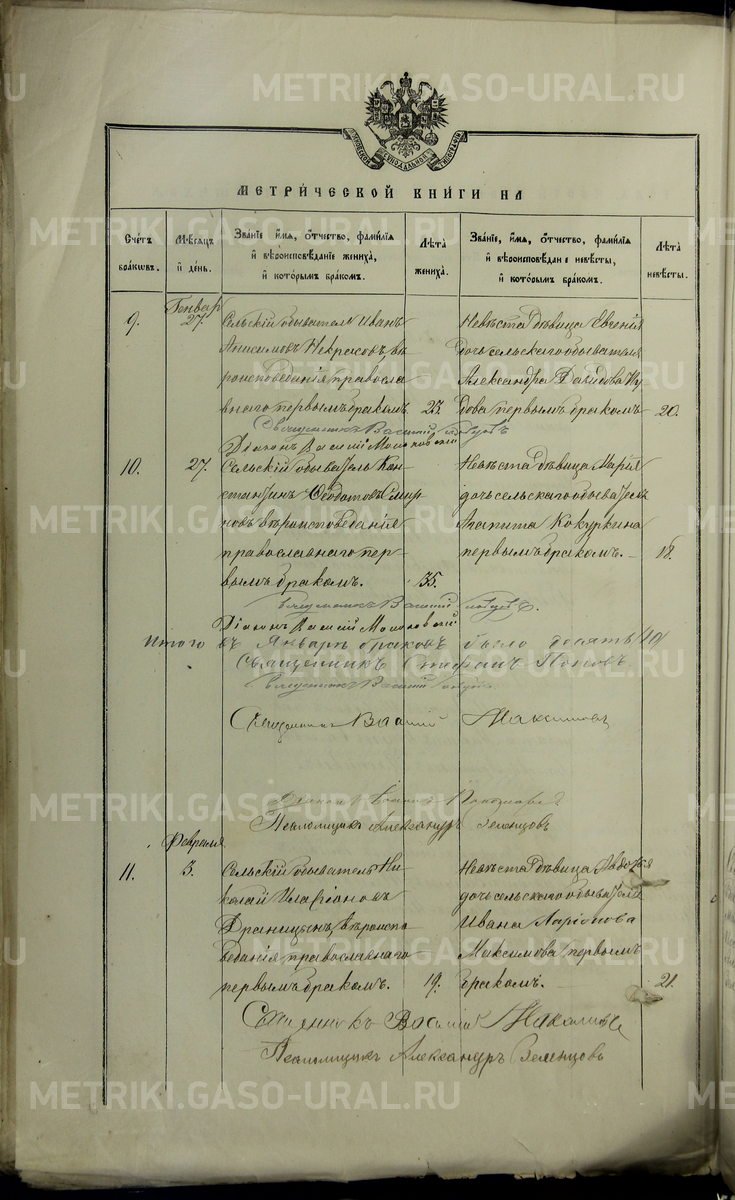 METRIKI.GASO-URAL.RU
МОСКОВСКОЙ СѴНОДАЛЬНОЙ ТИПОГРАФІИ
МЕТРИ́ЧЕСКОЙ КНИ́ГИ НА
Счетъ бра́ковъ.
Мѣ́сяцъ и҆ де́нь.
Зва́ніе, и҆́мя, ѻ҆́тчество, фами́лія и҆ вѣроисповѣ́даніе жениха̀, и҆ кото́рымъ бра́комъ.
Лѣ́та жениха̀.
Зва́ніе, и҆́мя, ѻ҆́тчество, фами́лія и҆ вѣроисповѣ́даніе невѣ́сты, и҆ кото́рымъ бра́комъ.
Лѣ́та невѣ́сты.
Генвар
9. 27. Сельскій обыватель Иванъ
Анисимовъ Некрасовъ, вѣ
роисповеданія правосла
внаго первымъ бракомъ. 23.
Невѣста дѣвица Евгенія
дочь сельскаго обывателя
Александра Давидова
первымъ бракомъ 20.
Священникъ Василій
Діаконъ Василій
10. 27. Сельскій обыватель Кон
стантинъ Ѳеодотовъ Смир
новъ вѣроисповеданія
православнаго пер
вымъ бракомъ. 35.
Невѣста дѣвица Марія
дочь сельскаго обывателя
Агапита Кокуркина
первымъ бракомъ. 18.
Священникъ Василій
Діаконъ Василій
Итого въ Январѣ браковъ было десять /10/
Священникъ Стефанъ Поповъ
Священникъ Василій
Священникъ Василій Максимовъ
Псаломщикъ Александръ Зеленцовъ
Февраля
11. 3. Сельскій обыватель Ни
колай Иларіоновъ
Драницынъ, вѣроиспо
веданія православнаго
первымъ бракомъ. 19.
Невѣста дѣвица Авдотья
дочь сельскаго обывателя
Ивана Ларіонова
Максимова первымъ
бракомъ. 21.
Священникъ Василій Максимовъ
Псаломщикъ Александръ Зеленцовъ